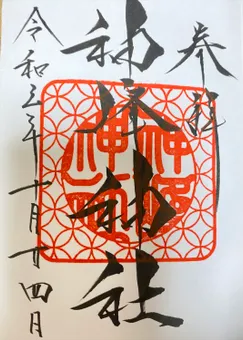 参拝
神峰神社
令和三年十月廿四日
神峰
神社